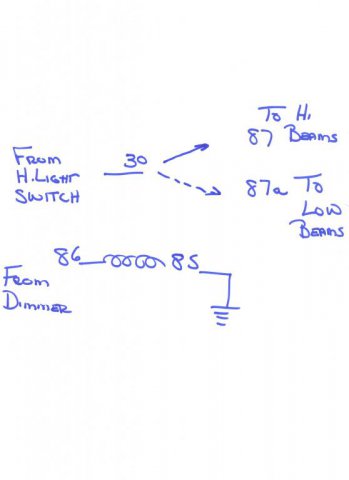 To Hi
87 Beams
From
H.Light
Switch
30
87a To
Low
Beams
86
85
From
Dimmer